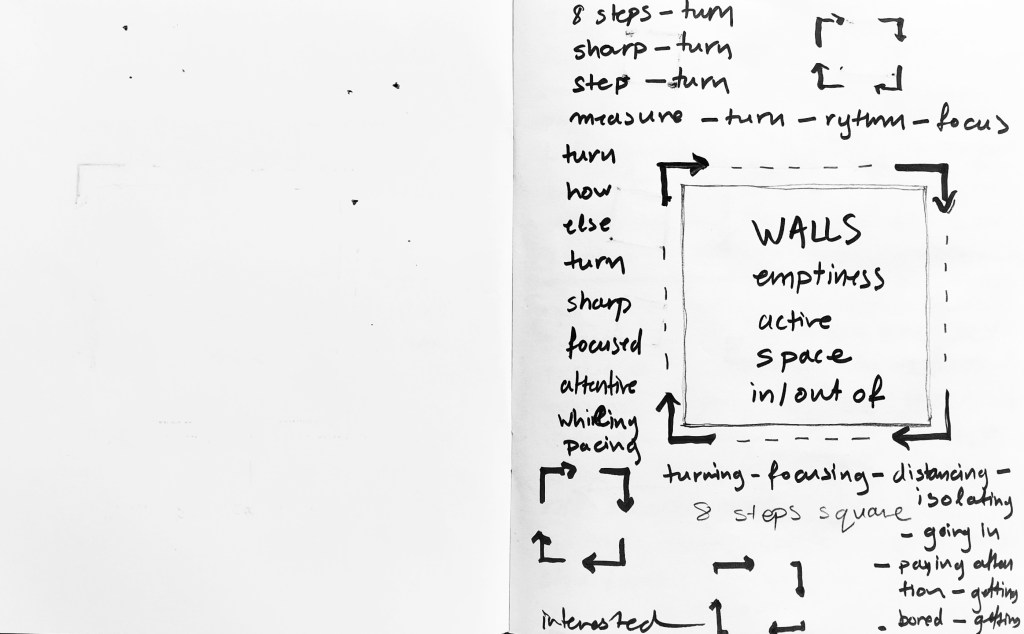 8 steps – turn
sharp – turn
step – turn
measure – turn – rythm – focus
turn
how
else
turn
sharp
focused
attentive
whirling
pacing
WALLS
emptiness
active
space
in/out of
turning – focusing – distancing –
isolating
8 steps square
– going in
– paying atten
tion – getting
bored – getting
interested